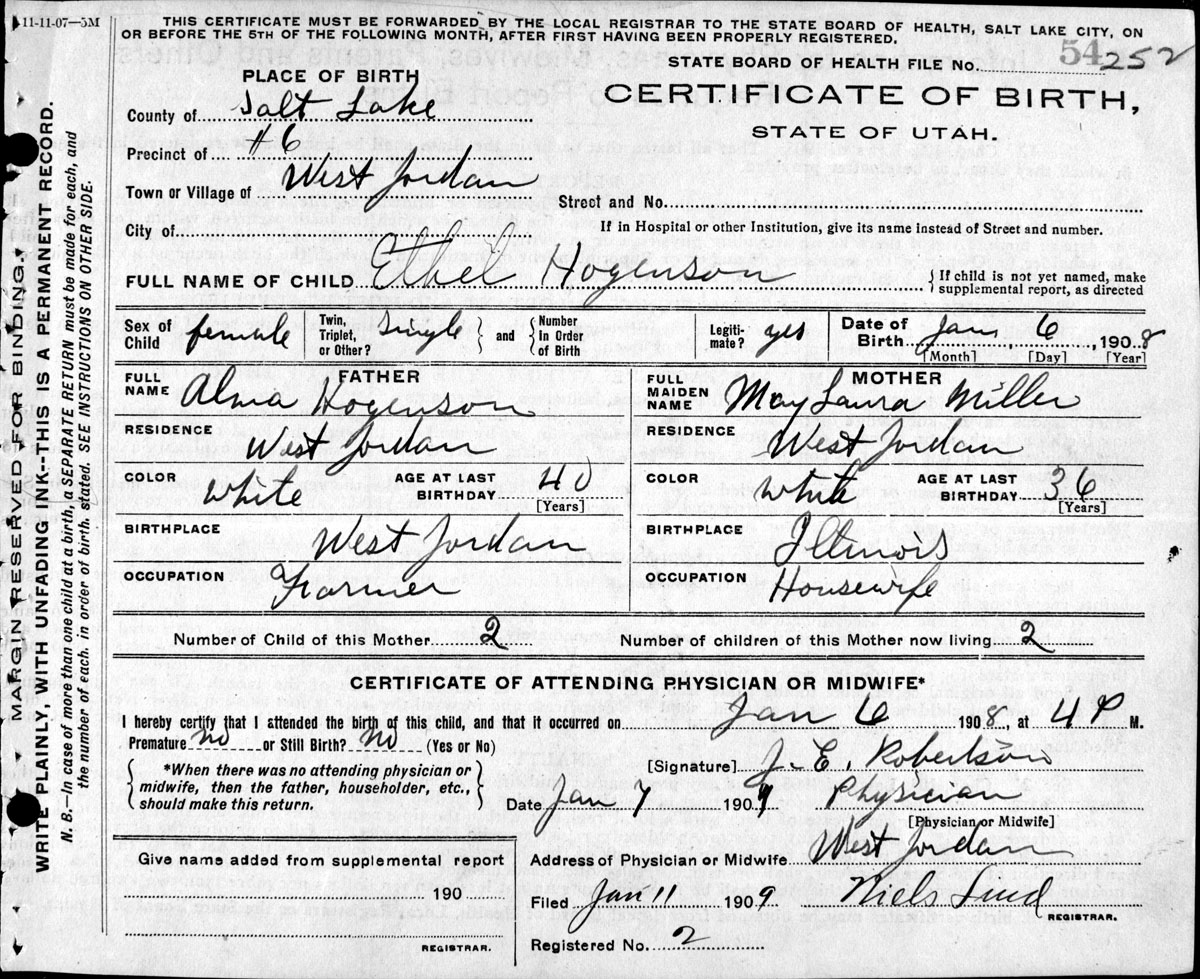 11-11-07—5M
THIS CERTIFICATE MUST BE FORWARDED BY THE LOCAL REGISTRAR TO THE STATE BOARD OF HEALTH, SALT LAKE CITY, ON
OR BEFORE THE 5TH OF THE FOLLOWING MONTH, AFTER FIRST HAVING BEEN PROPERLY REGISTERED.
STATE BOARD OF HEALTH FILE No. 54 252
PLACE OF BIRTH
CERTIFICATE OF BIRTH,
STATE OF UTAH.
County of Salt Lake
Precinct of #6
Town or Village of West Jordan
Street and No.
City of
If in Hospital or other Institution, give its name instead of Street and number.
FULL NAME OF CHILD Ethel Hogenson
If child is not yet named, make
supplemental report, as directed
Sex of Child female
Twin, Triplet, or Other? Single
and
Number In Order of Birth
Legiti-mate? yes
Date of Birth Jan 6, 1908
[Month] [Day] [Year]
FATHER
FULL NAME Alma Hogenson
RESIDENCE West Jordan
COLOR white
AGE AT LAST BIRTHDAY 40
[Years]
BIRTHPLACE West Jordan
OCCUPATION Farmer
MOTHER
FULL MAIDEN NAME May Laura Miller
RESIDENCE West Jordan
COLOR white
AGE AT LAST BIRTHDAY 36
[Years]
BIRTHPLACE Illinois
OCCUPATION Housewife
Number of Child of this Mother 2
Number of children of this Mother now living 2
CERTIFICATE OF ATTENDING PHYSICIAN OR MIDWIFE*
I hereby certify that I attended the birth of this child, and that it occurred on Jan 6 1908, at 4 P M.
Premature No or Still Birth? No (Yes or No)
*When there was no attending physician or
midwife, then the father, householder, etc.,
should make this return.
[Signature] J. E. Robertson
Date Jan 7 1909 Physician
[Physician or Midwife]
Give name added from supplemental report
190
REGISTRAR.
Address of Physician or Midwife West Jordan
Filed Jan 11 1909 Niels Lind
REGISTRAR.
Registered No. 2
MARGIN RESERVED FOR BINDING.
WRITE PLAINLY, WITH UNFADING INK--THIS IS A PERMANENT RECORD.
N. B.—In case of more than one child at a birth, a SEPARATE RETURN must be made for each, and
the number of each, in order of birth, stated. SEE INSTRUCTIONS ON OTHER SIDE.